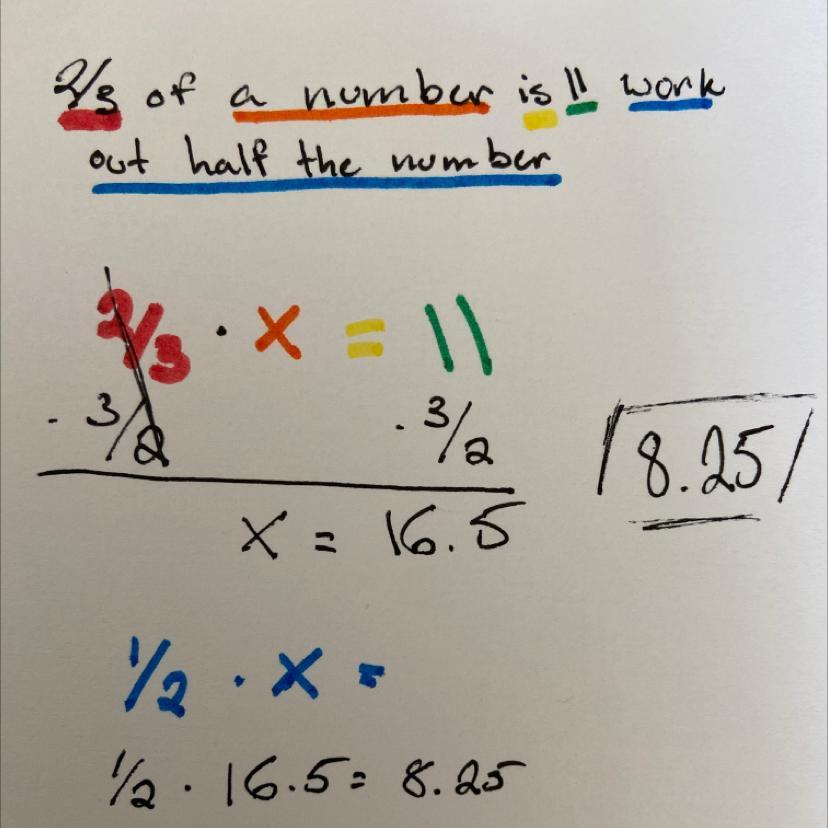 2/3 of a number is 11 work
out half the number
2/3 · x = 11
· 3/2 · 3/2
x = 16.5
8.25
1/2 · x =
1/2 · 16.5 = 8.25